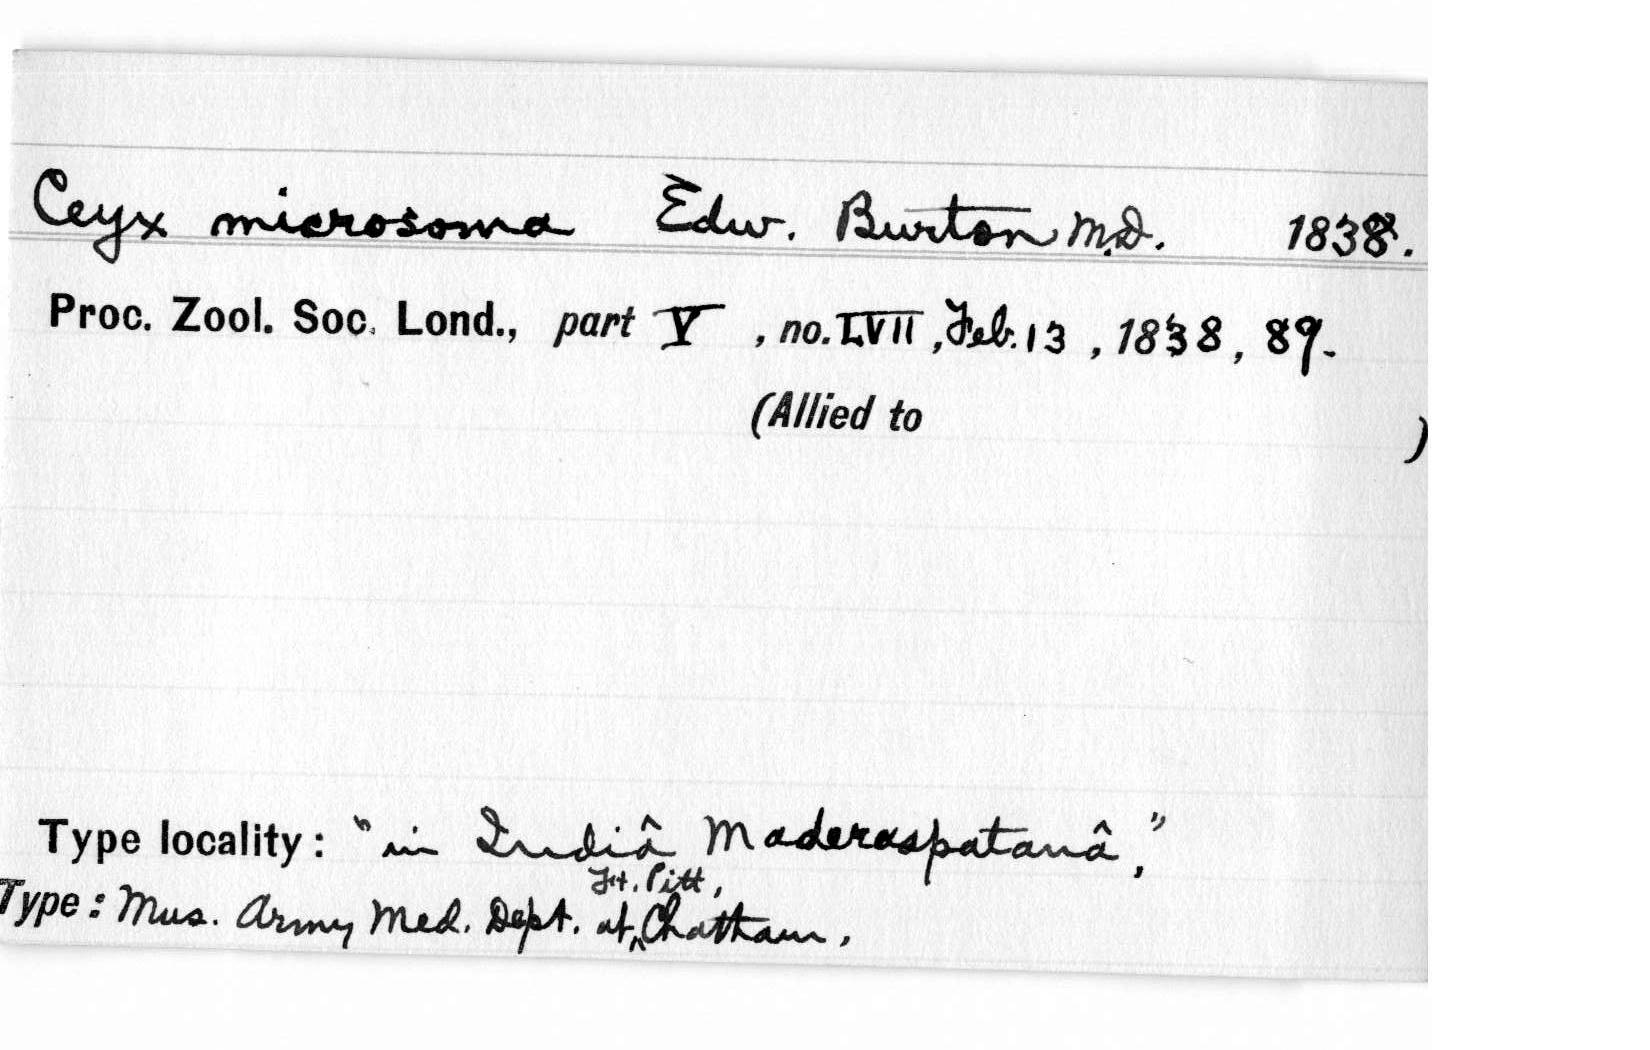 Ceyx microsoma Edw. Burton M.D. 1838.
Proc. Zool. Soc. Lond., part V, no. LVII, Feb. 13, 1838, 89.
(Allied to )
Type locality: "in Indiâ Maderaspatanâ,"
Ft. Pitt,
Type: Mus. Army Med. Dept. at ^ Chatham.